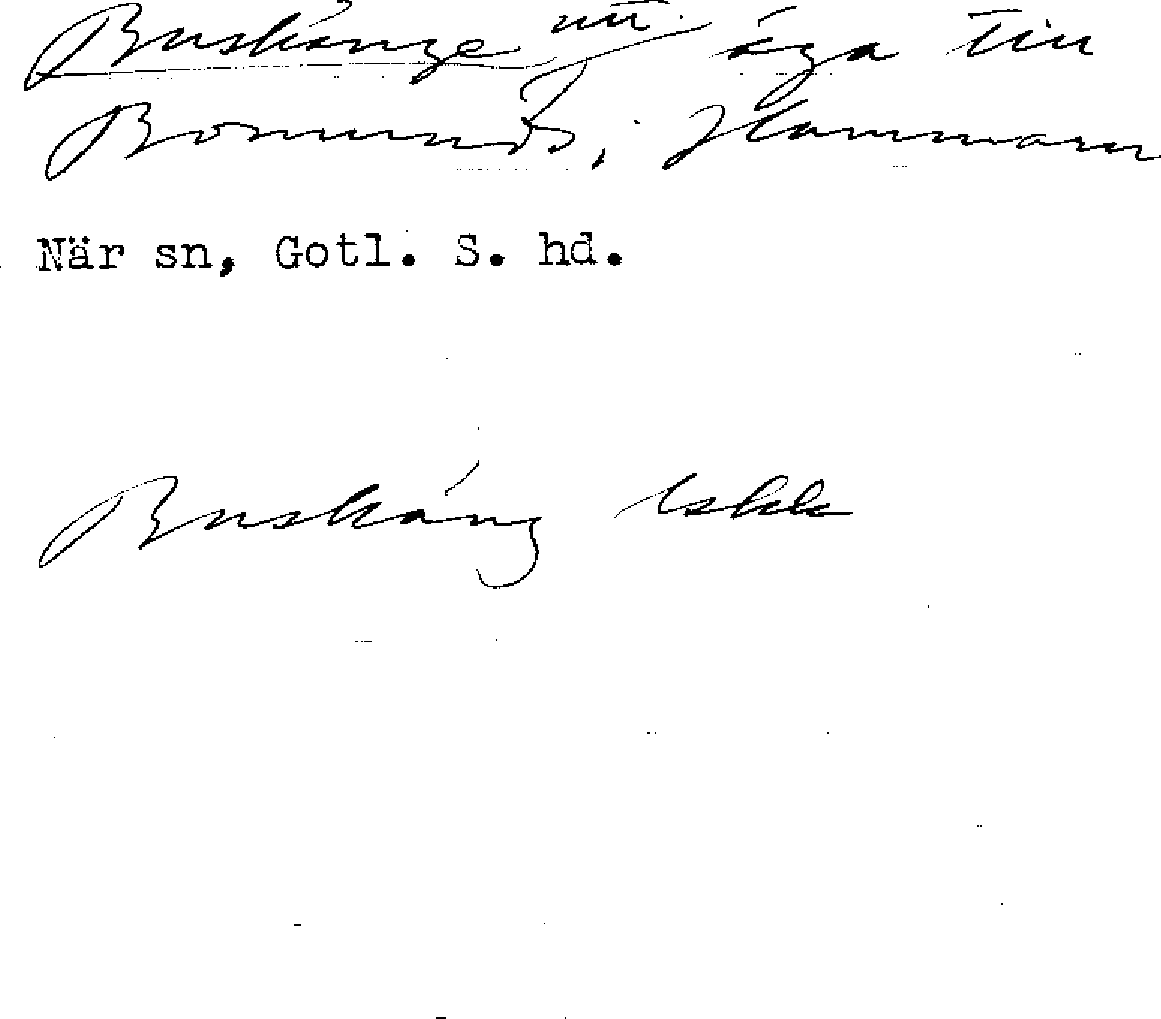 Buskänge utt. äga till
Bomunds, Hammarn
När sn, Gotl. S. hd.
Buskäng